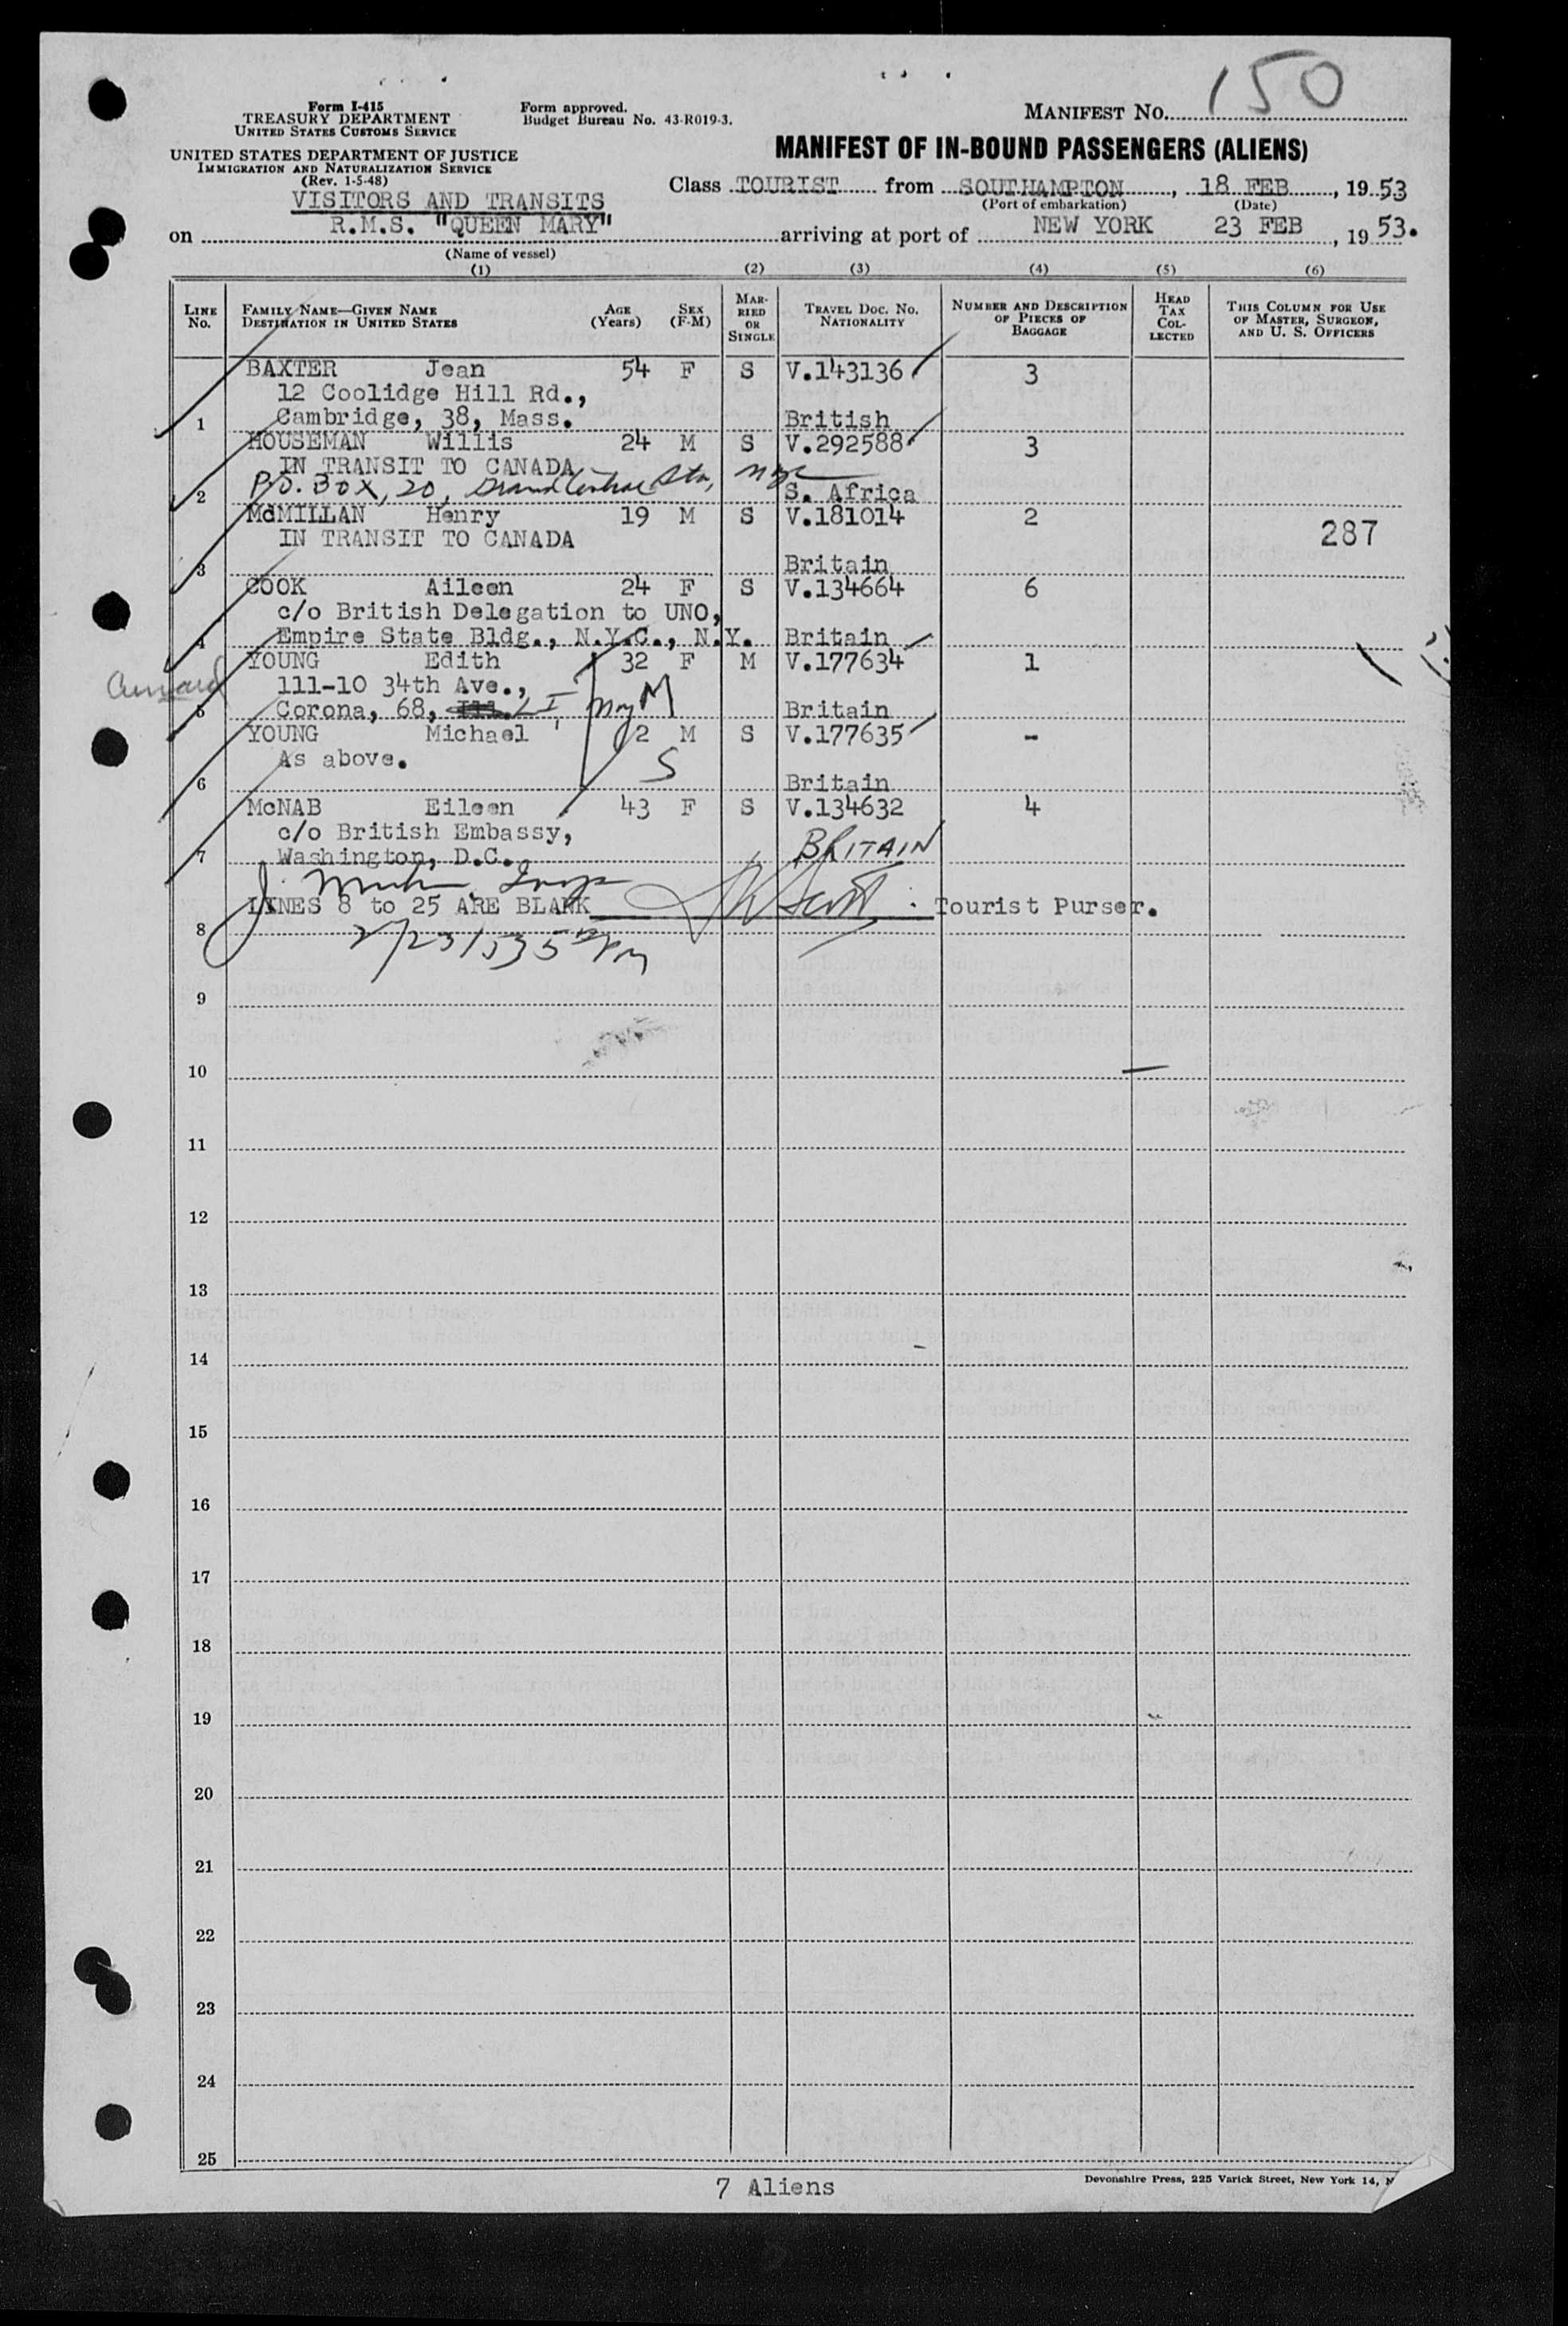 150
Form I-415
TREASURY DEPARTMENT
UNITED STATES CUSTOMS SERVICE
Form approved.
Budget Bureau No. 43-R019-3.
MANIFEST No.
UNITED STATES DEPARTMENT OF JUSTICE
IMMIGRATION AND NATURALIZATION SERVICE
(Rev. 1-5-48)
MANIFEST OF IN-BOUND PASSENGERS (ALIENS)
VISITORS AND TRANSITS
Class TOURIST from SOUTHAMPTON, 18 FEB, 1953
(Port of embarkation) (Date)
on R.M.S. "QUEEN MARY" arriving at port of NEW YORK 23 FEB, 1953.
(Name of vessel)
(1) (2) (3) (4) (5) (6)
LINE No.
FAMILY NAME—GIVEN NAME
DESTINATION IN UNITED STATES
AGE (Years)
SEX (F-M)
MARRIED OR SINGLE
TRAVEL DOC. No.
NATIONALITY
NUMBER AND DESCRIPTION OF PIECES OF BAGGAGE
HEAD TAX COLLECTED
THIS COLUMN FOR USE OF MASTER, SURGEON, AND U. S. OFFICERS
BAXTER Jean 54 F S V.143136 3
12 Coolidge Hill Rd.,
1 Cambridge, 38, Mass. British
HOUSEMAN Willis 24 M S V.292588 3
IN TRANSIT TO CANADA
2 P.O. Box, 20, Grand Central Sta, nyc S. Africa
McMILLAN Henry 19 M S V.181014 2
IN TRANSIT TO CANADA 287
3 Britain
COOK Aileen 24 F S V.134664 6
c/o British Delegation to UNO,
4 Empire State Bldg., N.Y.C., N.Y. Britain
YOUNG Edith 32 F M V.177634 1
Cunard 111-10 34th Ave.,
5 Corona, 68, Ill. L I, ny M Britain
YOUNG Michael 2 M S V.177635 -
As above. S
6 Britain
McNAB Eileen 43 F S V.134632 4
c/o British Embassy,
7 Washington, D.C. BRITAIN
LINES 8 to 25 ARE BLANK Tourist Purser.
8 2/23/53 5 PM
9
10
11
12
13
14
15
16
17
18
19
20
21
22
23
24
25
7 Aliens
Devonshire Press, 225 Varick Street, New York 14, N